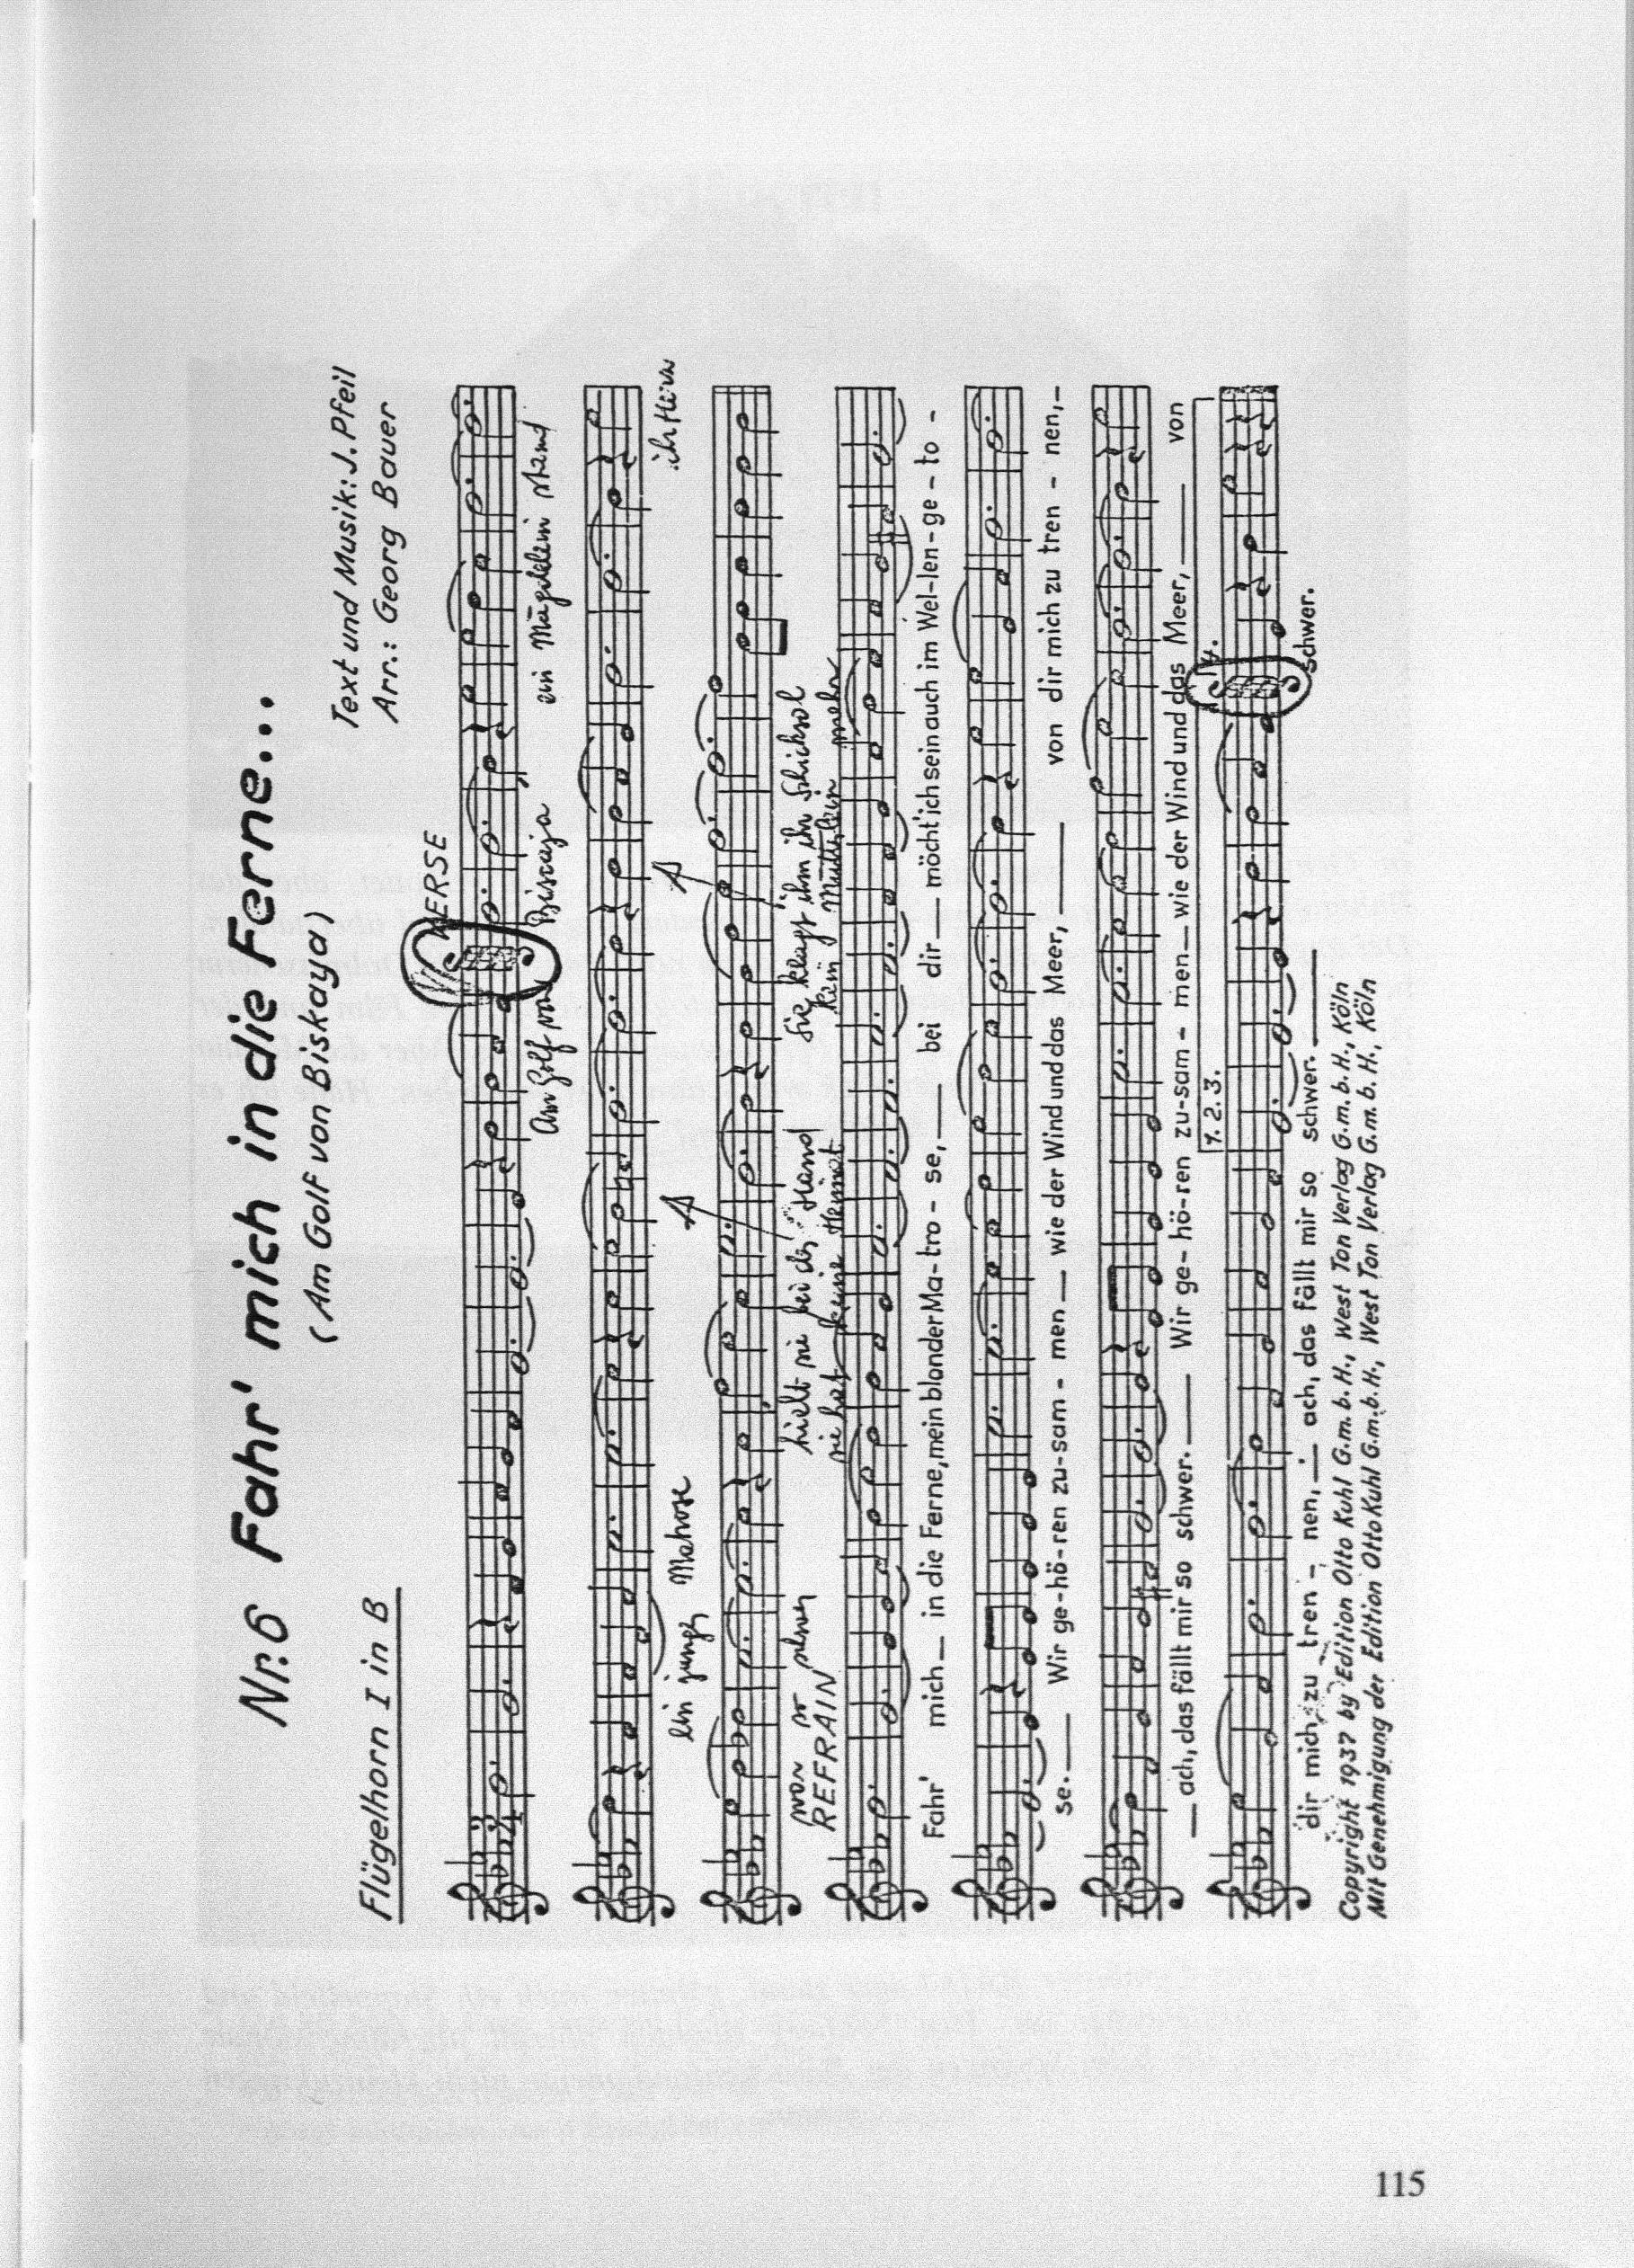 Nr.6 Fahr' mich in die Ferne...
(Am Golf von Biskaya)
Text und Musik: J. Pfeil
Flügelhorn I in B
Arr.: Georg Bauer
VERSE
3/4
Am Golf von Biscaya ein Mägdelein stand
ein junger Matrose
sie klagt ihm ihr Schicksal
hielt sie bei der Hand
kein Mütterlein mehr
sie hat keine Heimat
REFRAIN
Fahr' mich — in die Ferne, mein blonder Ma-tro-se, — bei dir — möcht' ich sein auch im Wel-len-ge-to-
se. — Wir ge-hö-ren zu-sam-men — wie der Wind und das Meer, — von dir mich zu tren-nen, —
— ach, das fällt mir so schwer. — Wir ge-hö-ren zu-sam-men — wie der Wind und das Meer, — von
1. 2. 3.
4.
dir mich zu tren-nen, — ach, das fällt mir so schwer. — schwer.
Copyright 1937 by Edition Otto Kuhl G.m.b.H., West Ton Verlag G.m.b.H., Köln
Mit Genehmigung der Edition Otto Kuhl G.m.b.H., West Ton Verlag G.m.b.H., Köln
115